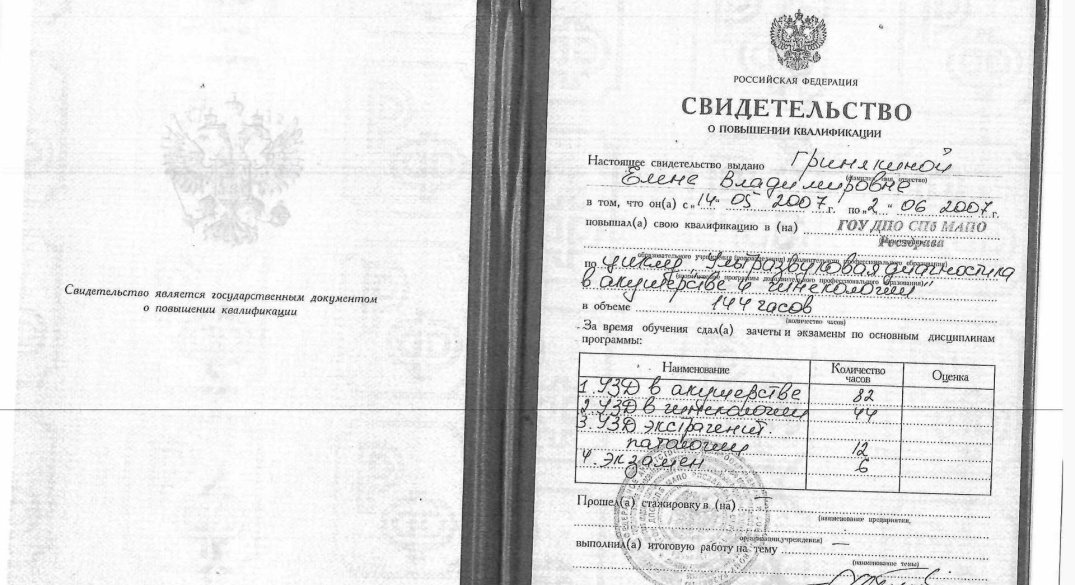 Свидетельство является государственным документом
о повышении квалификации
РОССИЙСКАЯ ФЕДЕРАЦИЯ
СВИДЕТЕЛЬСТВО
О ПОВЫШЕНИИ КВАЛИФИКАЦИИ
Настоящее свидетельство выдано Гринякиной
(фамилия, имя, отчество)
Елене Владимировне
в том, что он(а) с „14“ 05 2007 г. по „2“ 06 2007 г.
повышал(а) свою квалификацию в (на) ГОУ ДПО СПб МАПО
Росздрава
(наименование образовательного учреждения дополнительного профессионального образования)
по циклу „Ультразвуковая диагностика
(наименование программы дополнительного профессионального образования)
в акушерстве и гинекологии“
в объеме 144 часов
(количество часов)
За время обучения сдал(а) зачеты и экзамены по основным дисциплинам
программы:
Наименование Количество часов Оценка
1. УЗД в акушерстве 82
2. УЗД в гинекологии 44
3. УЗД экстрагенит.
патологии 12
4. экзамен 6
Прошел(а) стажировку в (на) —
(наименование предприятия,
организации, учреждения)
выполнил(а) итоговую работу на тему —
(наименование темы)